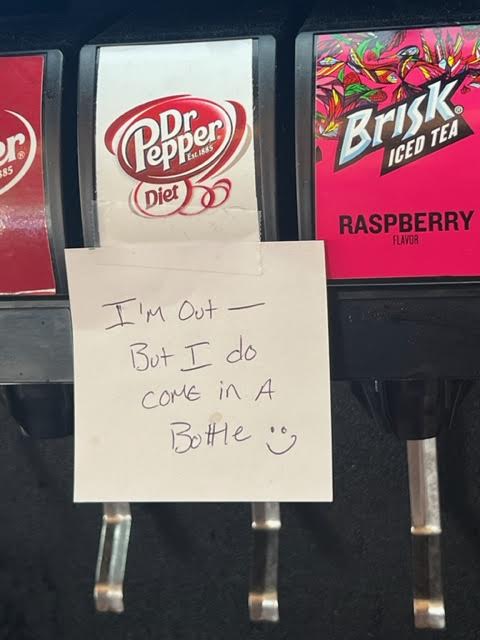 er®
885
Dr
Pepper®
Est. 1885
Diet
BRISK®
ICED TEA
RASPBERRY
FLAVOR
I'm Out —
But I do
COME in A
Bottle :)